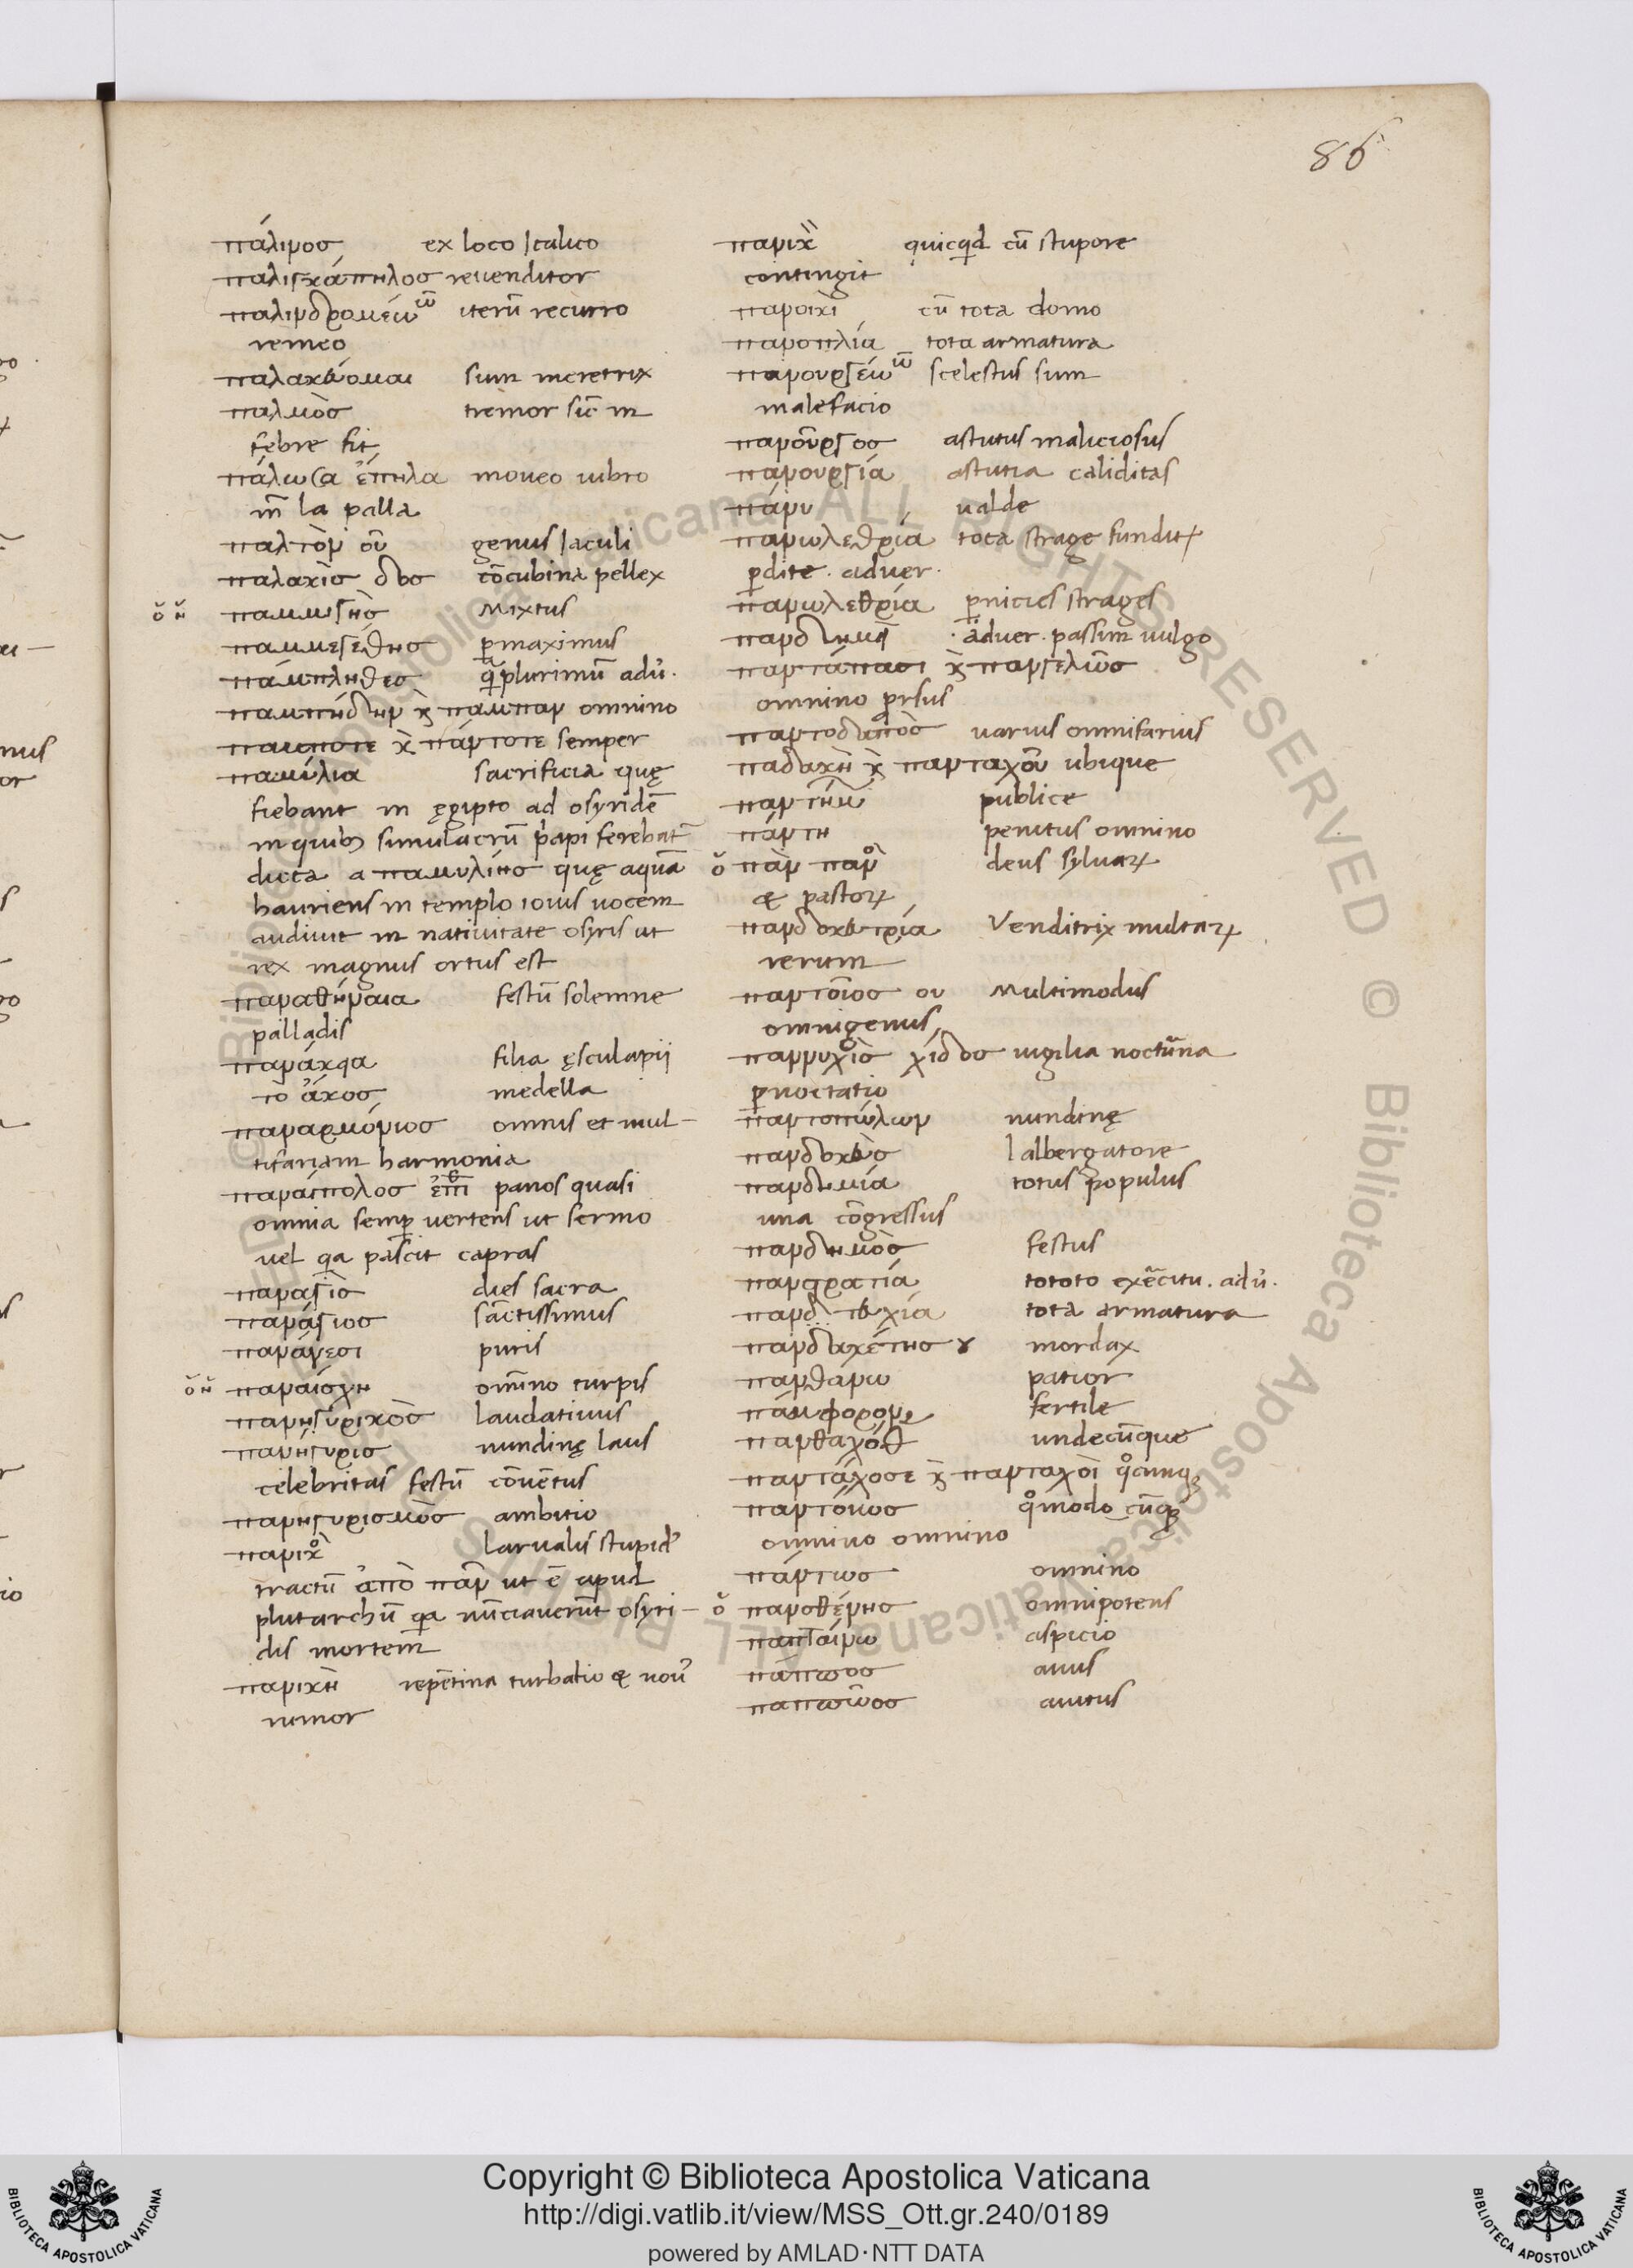 86
πάλινος ex loco Italico
παλιγκάπηλος reuenditor
παλινδρομέω ῶ iterũ recurro
remeo
παλακεύομαι sum meretrix
παλμὸς tremor sic̃ in
febre fit
πάλω ἔπηλα moueo uibro
la palla
παλτὸν οῦ genus Iaculi
παλακὶς δος cõcubina pellex
ὁ ἡ παμμιγὴς Mixtus
παμμεγέθης ꝑmaximus
πάμπληθες plurimũ adu̓.
παμπήδην κ̀ πάμπαν omnino
παμποτε κ̀ πάντοτε semper
παμύλια sacrificia quę
fiebant in ęgipto ad osyridẽ
in quib; simulacrũ p̓api ferebat̃
dicta a παμυλίης quę aquã
hauriens in templo iouis uocem
audiuit in natiuitate osyris ut
rex magnus ortus est
παναθήναια festũ solemne
palladis
πανάκεα filia ęsculapij
τὸ ἄκος medella
παναρμόνιος omnis et mul-
tifariam harmonia
παναίπολος panos quasi
omnia semꝑ uertens ut sermo
uel qa pascit capras
παναγὶς dies sacra
πανάγιος sãctissimus
πανάγεσι puris
ὁ ἡ παναίσχη omĩno turpis
πανηγυρικὸς laudatiuus
πανήγυρις nundinę laus
celebritas festũ cõuẽtus
πανηγυρισμὸς ambitio
πανικὸ larualis stupid᾽
tractũ ἀπὸ πᾶν ut ẽ apud
plutarchũ qa nũciauerũt osyri-
dis mortem
πανικὴ repẽtina turbatio & nou᾽
rumor
πανικὰ quicqd cũ stupore
contingit
πανοικὶ cũ tota domo
πανοπλία tota armatura
πανουργέω ῶ scelestus sum
malefacio
πανοῦργος astutus maliciosus
πανουργία astutia caliditas
πάνυ ualde
πανωλεθρία tota strage fundit
ꝑdite. aduer.
πανωλεθρία ꝑnicies strages
πανδημεὶ . aduer. passim uulgo
παντάπασι κ̀ παντελῶς
omnino ꝓrsus
παντοδαπὸς uarius omnifarius
παδαχῆ κ̀ πανταχοῦ ubique
publice
πάντη penitus omnino
ὁ πὰν πανὸ deus syluaꝝ
& pastoꝝ
πανδοκευτρία Venditrix multaꝝ
rerum
παντοῖος ου Multimodus
omnigenus
παννυχὶς χίδος uigilia noctũna
ꝑnoctatio
παντοπώλων nundinę
πανδοκεὺς l albergatore
πανδημία totus populus
una cõgressus
πανδημὸς festus
πανστρατιά tototo exẽcitu. adu̓.
πανδ τευχία tota armatura
πανδακέτης ȣ mordax
πανθανω patior
πάμφορον fertile
πανθαχόθ undecũque
παντάχοσε κ̀ πανταχοῖ qͦcunq;
παντόιως qͦmodo cũqꝫ
omnino omnino
πάντως omnino
ὁ πανσθένης omnipotens
παπταίνω aspicio
πάππος auus
παππῶος auitus
Copyright © Biblioteca Apostolica Vaticana
http://digi.vatlib.it/view/MSS_Ott.gr.240/0189
powered by AMLAD·NTT DATA
BIBLIOTECA APOSTOLICA VATICANA
BIBLIOTECA APOSTOLICA VATICANA